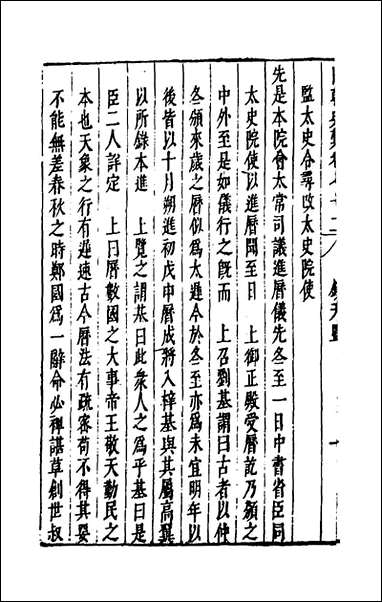 國朝典彙卷七十二 欽天監 一
監太史令尋改太史院使
先是本院會太常司議進曆儀先冬至一日中書省臣同
太史院使以進曆聞至日　上御正殿受曆訖乃頒之
中外至是如儀行之既而　上召劉基謂曰古者以仲
冬頒來歲之曆似為太遲今於冬至亦為未宜明年以
後皆以十月朔進初戊申曆成將入梓基與其屬高翼
以所錄本進　上覽之謂基曰此衆人之為乎基曰是
臣二人詳定　上曰曆數國之大事帝王敬天勤民之
本也天象之行有遲速古今曆法有疏密苟不得其要
不能無差春秋之時鄭國為一辭命必裨諶草創世叔